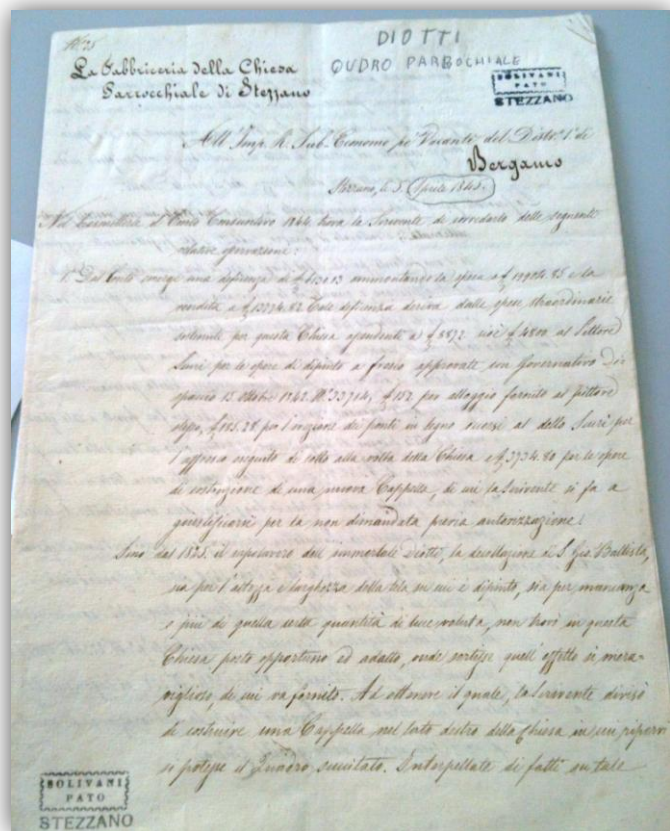 N.° 25
DIOTTI
QUDRO PARROCHIALE
BOLIVANI
FATO
STEZZANO
La Fabbriceria della Chiesa
Parrocchiale di Stezzano
All' Imp. R. Sub. Economo pei Vacanti del Distto. 1° di
Bergamo
Stezzano, li 3. Aprile 1845.
Nel trasmettere il Conto Consuntivo 1844 trova la Scrivente di corredarlo delle seguenti
relative osservazioni:
1° Dal Conto emerge una deficienza di ammontando la spesa a e la
rendita a Tale deficienza deriva dalle spese straordinarie
sostenute per questa Chiesa ascendenti a £ 8872 cioè £ 4800 al Pittore
Scuri per le opere di dipinto a fresco approvate con Governativo Di-
spaccio 13 ottobre 1842 N.° 33714, £ 152 per alloggio fornito al pittore
stesso, per l'erezione dei ponti in legno occorsi al detto Scuri per
l'affresco eseguito di sotto alla volta della Chiesa e £ 3734.80 per le opere
di costruzione di una nuova Cappella, di cui la Scrivente si fa a
giustificarsi per la non dimandata previa autorizzazione.
Sino dal 1825. il capolavoro dell' immortale Diotti, la decollazione di S. Gio. Battista,
sia per l'altezza e larghezza della tela su cui è dipinto, sia per mancanza
o più di quella certa quantità di luce voluta, non trovò in questa
Chiesa posto opportuno ed adatto, onde sortisse quell' effetto sì mera-
viglioso, di cui va fornito. Ad ottenere il quale, la Scrivente divisò
di costruire una Cappella nel lato destro della Chiesa in cui
si potesse il Quadro succitato. Interpellate di fatti su tale
BOLIVANI
FATO
STEZZANO